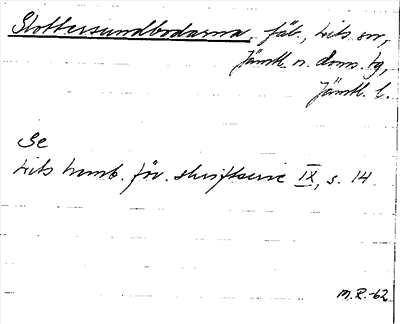 Slottersundbodarna, fäb., Lits sn,
Jämtl. n. doms. tg,
Jämtl. l.
Se
Lits hemb. för. skriftserie IX, s. 14
M.R.-62